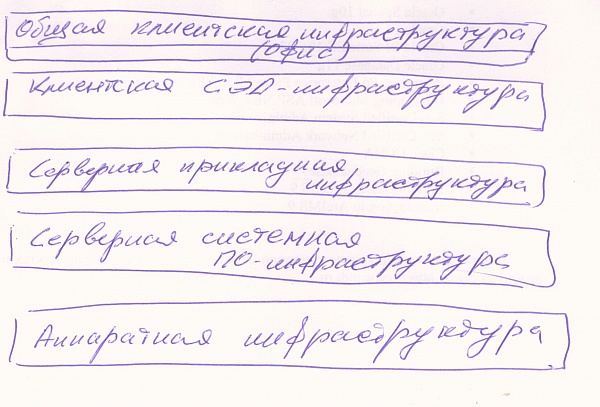 Общая клиентская инфраструктура
(Офис)
Клиентская СЭД-инфраструктура
Серверная прикладная
инфраструктура
Серверная системная
ПО-инфраструктура
Аппаратная инфраструктура